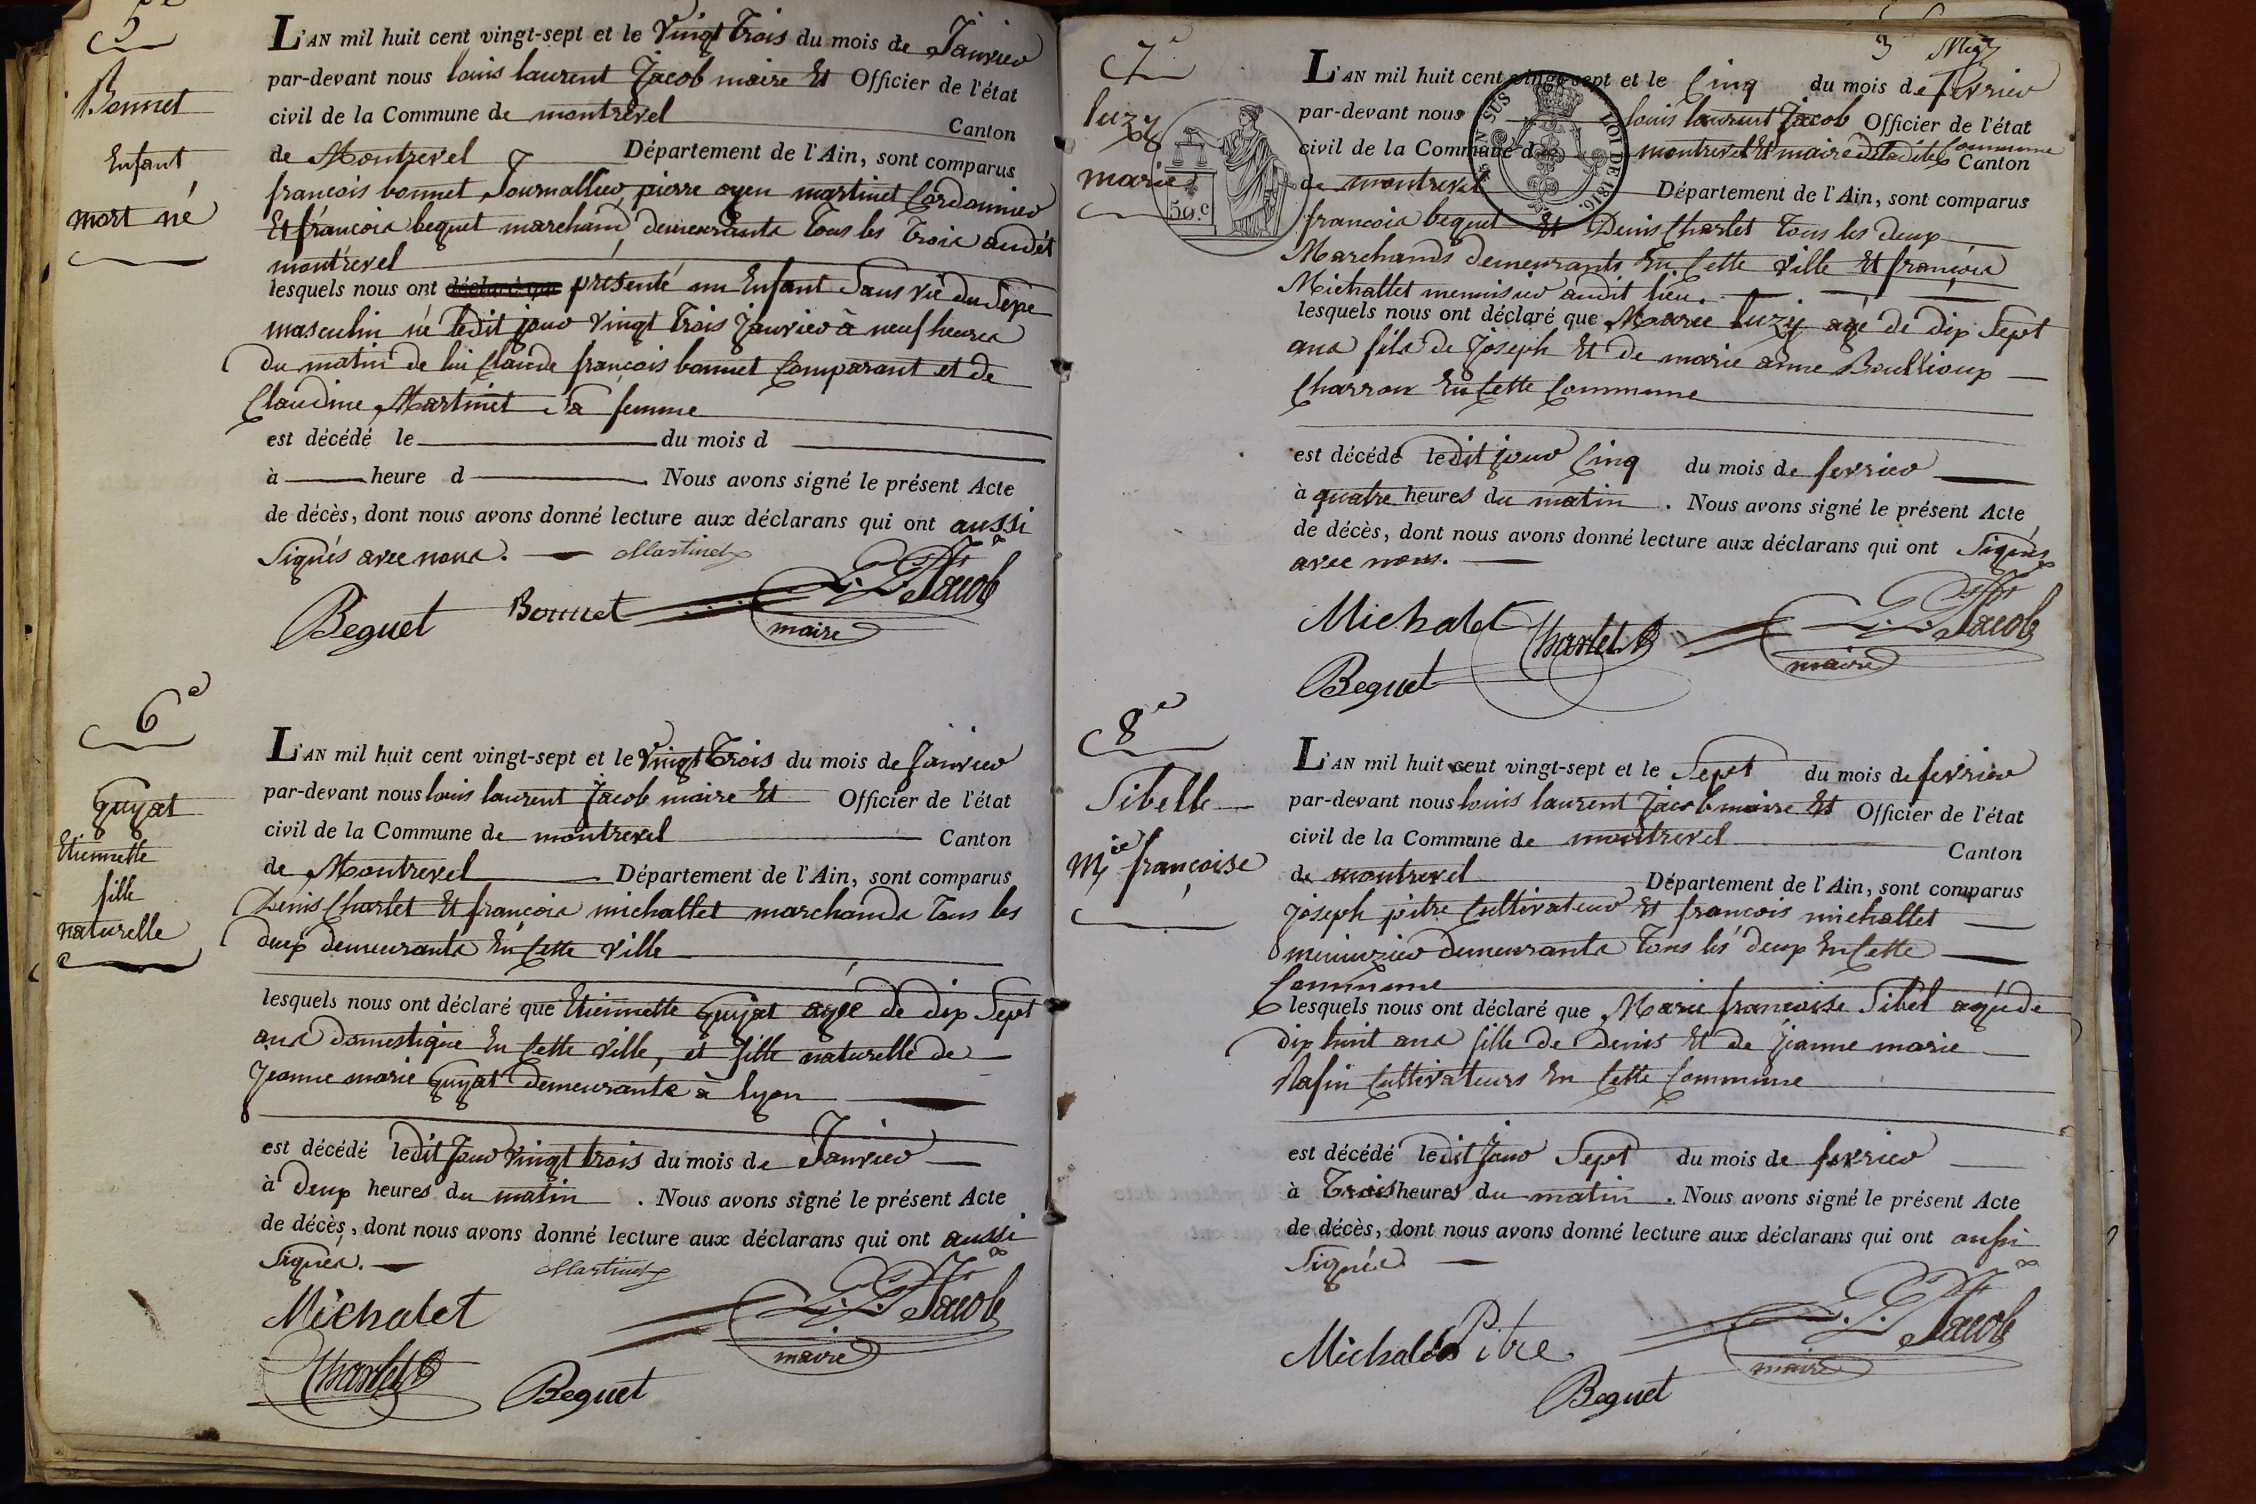 5e
Bonnet
Enfant
mort né
L'AN mil huit cent vingt-sept et le Vingt trois du mois de Janvier
par-devant nous louis laurent Jacob maire Et Officier de l'état
civil de la Commune de montrevel Canton
de Montrevel Département de l'Ain, sont comparus
francois bonnet Journallier, pierre oyen martinet Cordonnier
Et francois bequet marchand, demeurants tous les trois audit
montrevel
lesquels nous ont presenté un Enfant Sans vie du Sexe
masculin né ledit jour vingt trois Janvier à neuf heures
du matin de lui Claude françois bonnet Comparant et de
Claudine Martinet Sa femme
est décédé le du mois d
à heure d . Nous avons signé le présent Acte
de décès, dont nous avons donné lecture aux déclarans qui ont aussi
Signés avec nous. Martinet
Beguet Bonnet L. L. Jacob
maire
6e
Guyat
Etiennette
fille
naturelle
L'AN mil huit cent vingt-sept et le Vingt Trois du mois de Janvier
par-devant nous louis laurent Jacob maire Et Officier de l'état
civil de la Commune de montrevel Canton
de Montrevel Département de l'Ain, sont comparus
Denis Charlet Et francois michallet marchands tous les
deux demeurants En Cette ville
lesquels nous ont déclaré que Etiennette Guyat agée de dix Sept
ans domestique En Cette ville, et fille naturelle de
Jeanne marie Guyat demeurante à lyon
est décédé ledit Jour vingt trois du mois de Janvier
à deux heures du matin . Nous avons signé le présent Acte
de décès, dont nous avons donné lecture aux déclarans qui ont aussi
Signés. Martinet
Michalet L. L. Jacob
maire
Charlet
Beguet
3
7e
luzy
marie
50.C
LOI DE 1816.
L'AN mil huit cent vingt-sept et le Cinq du mois de fevrier
par-devant nous louis laurent Jacob Officier de l'état
civil de la Commune de montrevel Et maire de ladite Commune Canton
de montrevel Département de l'Ain, sont comparus
francois bequet Et Denis Charlet tous les deux
Marchands demeurants En Cette ville Et françois
Michallet menuisier audit lieu.
lesquels nous ont déclaré que Marie luzy agé de dix Sept
ans fils de Joseph Et de marie anne
Charron En Cette Commune
est décédé ledit jour Cinq du mois de fevrier
à quatre heures du matin . Nous avons signé le présent Acte
de décès, dont nous avons donné lecture aux déclarans qui ont Signés
avec nous.
Michalet Charlet L. L. Jacob
maire
Beguet
8e
Sibelle
Mie françoise
L'AN mil huit cent vingt-sept et le Sept du mois de fevrier
par-devant nous louis laurent Jacob maire Et Officier de l'état
civil de la Commune de montrevel Canton
de montrevel Département de l'Ain, sont comparus
Joseph pitre Cultivateur Et francois michallet
menuizier demeurants tous les deux En Cette
Commune
lesquels nous ont déclaré que Marie francoise Sibel agée de
dix huit ans fille de Denis Et de Jeanne marie
Cultivateurs En Cette Commune
est décédé ledit Jour Sept du mois de fevrier
à Trois heures du matin . Nous avons signé le présent Acte
de décès, dont nous avons donné lecture aux déclarans qui ont aussi
Signés
Michalet Pitre L. L. Jacob
maire
Beguet